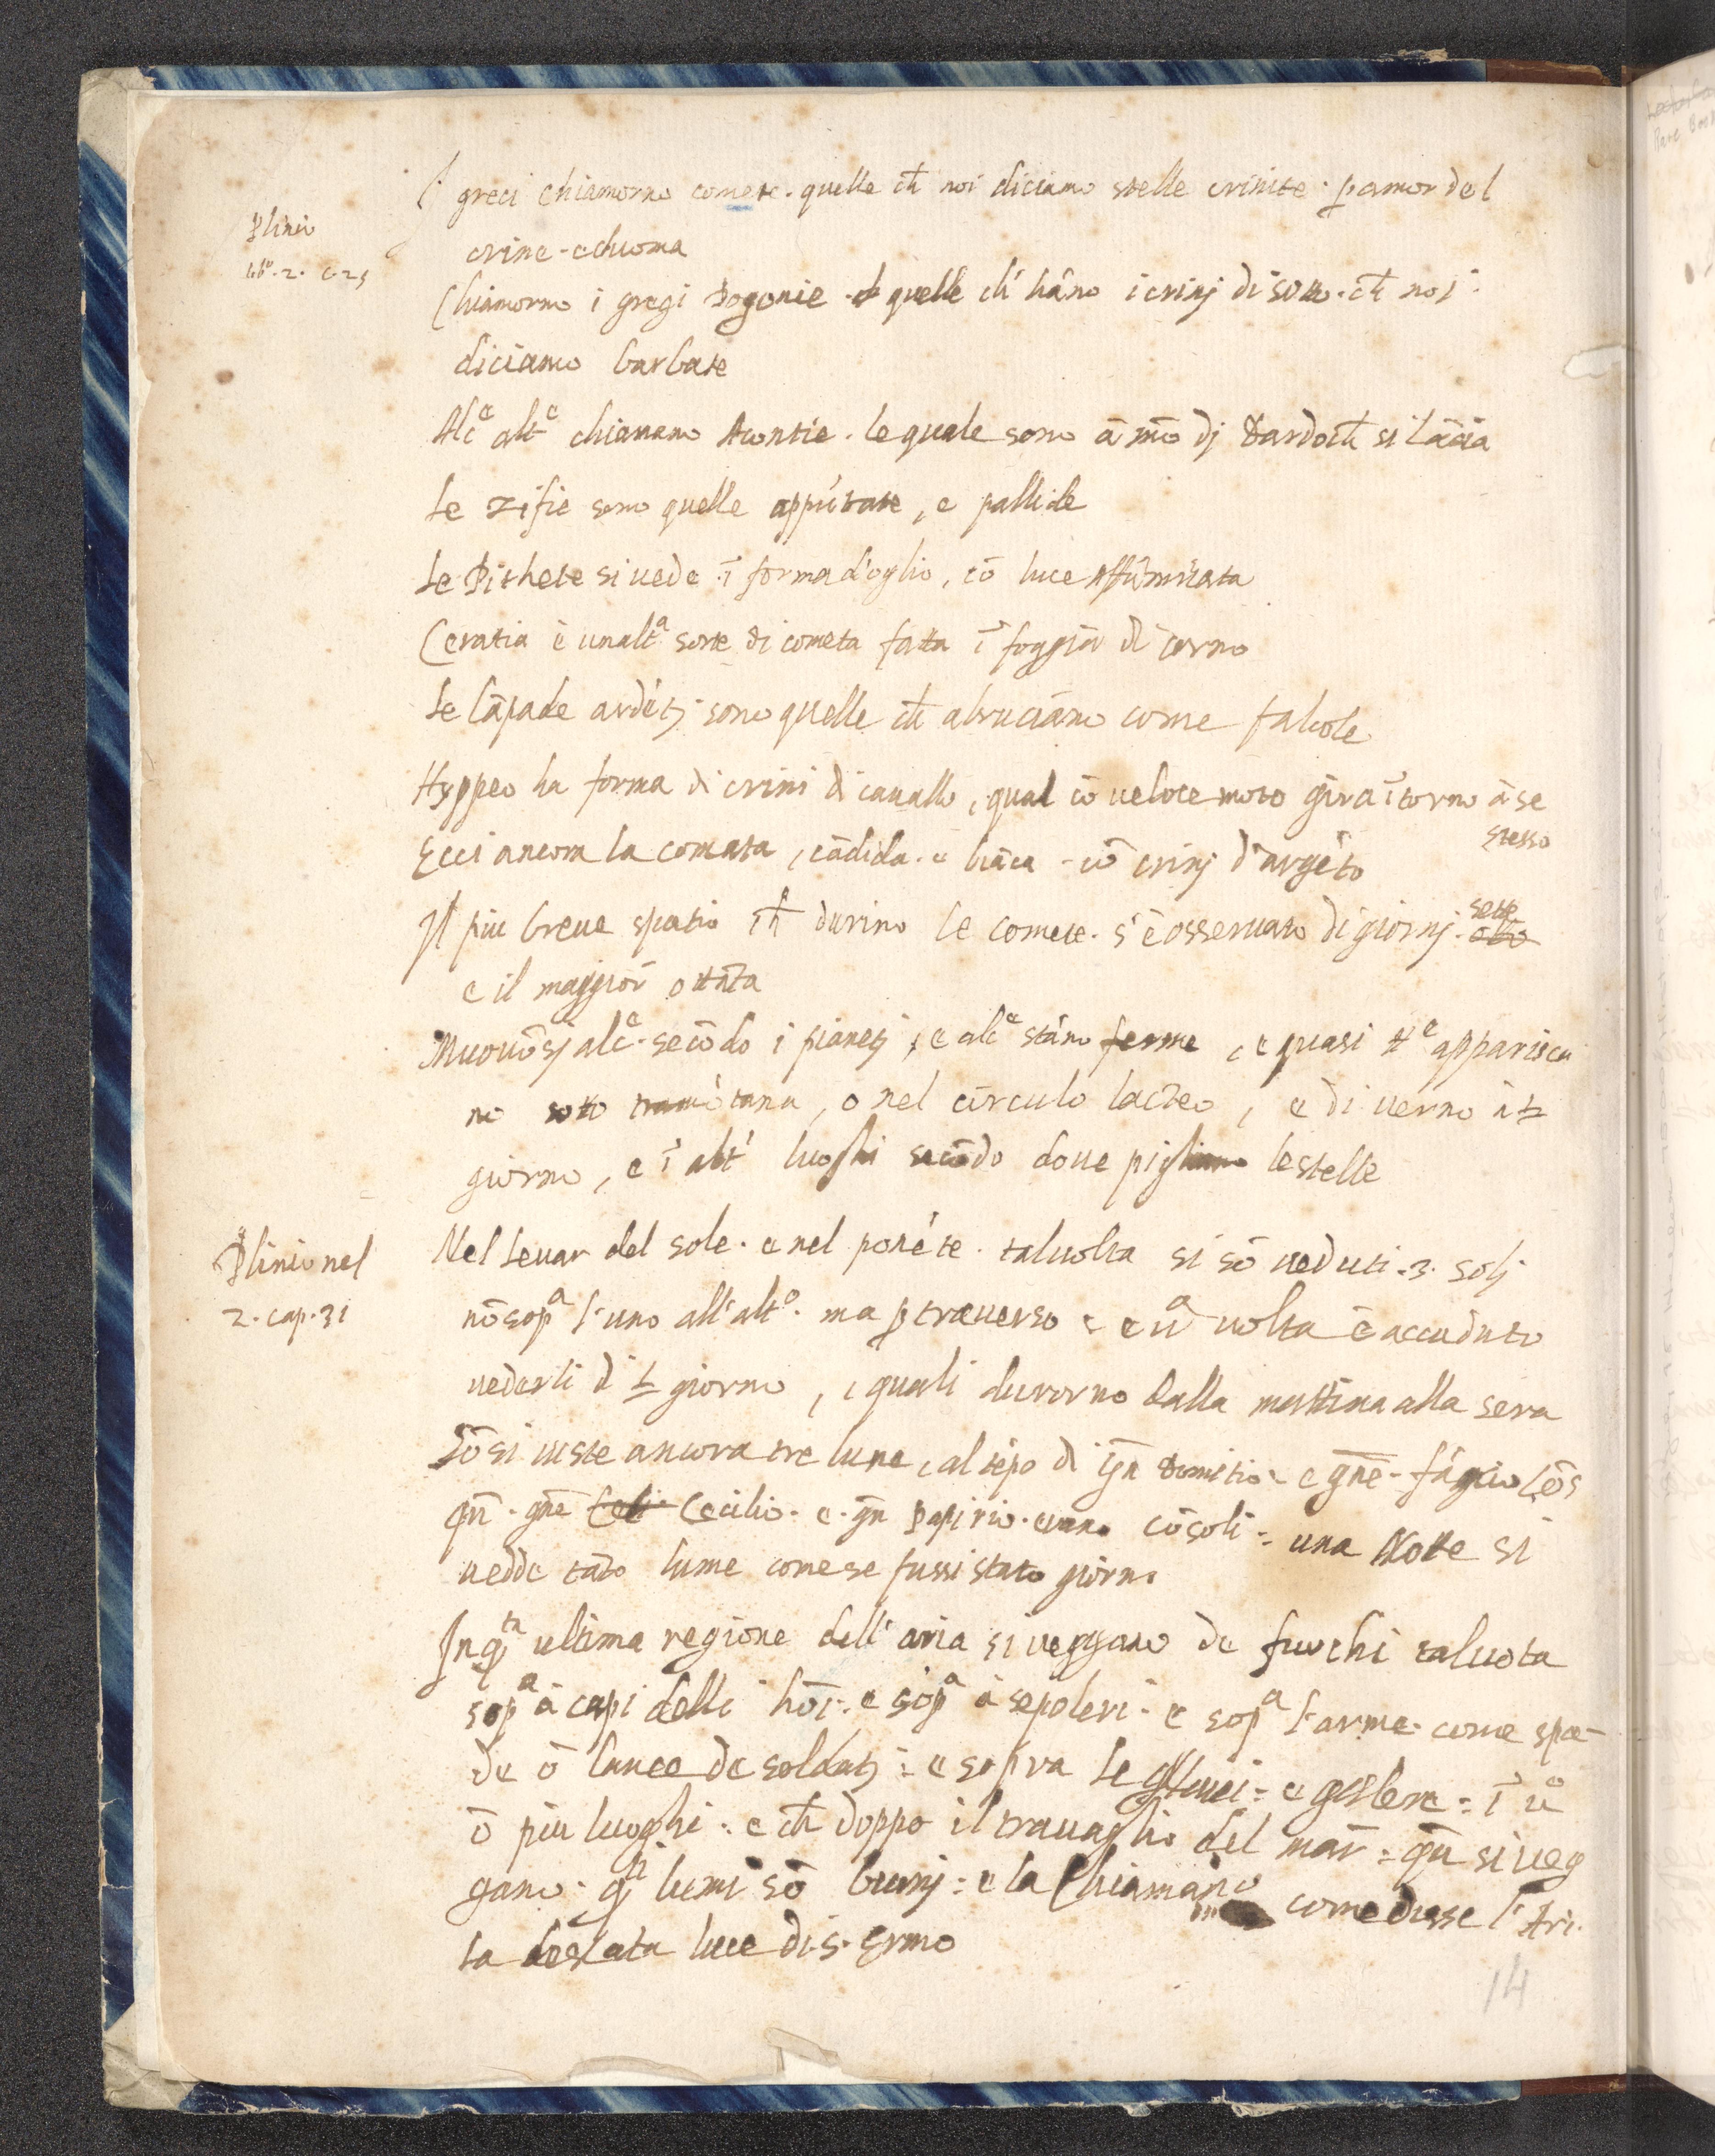 Plinio
lib°. 2. c. 25
I greci chiamorno comete. quelle ch̄ noi diciamo stelle crinite. p amor del
crine. e chioma
Chiamorno i gregi Pogonie. quelle ch̄ hāno i crinj di sotto. ch̄ noj
diciamo barbate
Alc^e alt^e chiamano Acontie. le quale sono ā mō dj Dardo ch̄ si lācia
Le zifie sono quelle appūtate, e pallide
Le Pithete si vede ī forma d'oglio, cō luce affūmicata
Ceratia è unalt^a sorte di cometa fatta ī foggia di corno
Le lāpade ardētj sono quelle ch̄ abruciāno come falcole
Hyppeo ha forma di crini di cauallo, qual cō ueloce moto gira ītorno à se
stesso
Ecci ancora la comata, cādida. e biāca. cō crinj d'argēto
Il piu breue spatio ch̄ durino le comete. s'è osseruato di giornj. sette
otto
e il maggior ottāta
Muouōsj alc^e. secōdo i pianetj, e alc^e stāno ferme, e quasi tt^e apparisca
no sotto tramōtana, o nel circulo lacteo, e di uerno
giorno, e ī alt^i luoghi secōdo doue pigliano le stelle
Plinio nel
2. cap. 31
Nel Leuar del sole. e nel ponēte. taluolta si sō ueduti. 3. solj
nō sop^a l'uno all'alt^o. ma p trauerso e ū^a uolta è accaduto
uederli di giorno, i quali durorno dalla mattina alla sera
Sōsi uiste ancora tre lune, al tēpo di gn̄ Domitio. e gn̄e. fāgio Cōs
qn̄. gn̄e Celi Cecilio. e. gn̄ Papirio. erano cōsoli. una Notte si
uedde tāto lume come se fussi stato giorno
In q^ta ultima regione dell'aria si ueggano de fuochi taluota
sop^a à capi delli hōi. e sop^a à sepolcri. e sop^a l'arme. come spa-
de ō lance de soldatj. e sopra le e ī ū^o
ō piu luoghi. e ch̄ doppo il trauaglio del mar. qn̄ si ueg
gano. q^ti lumi sō buonj. e la Chiamano come disse l'Ari.
la luce di. S. Ermo
14